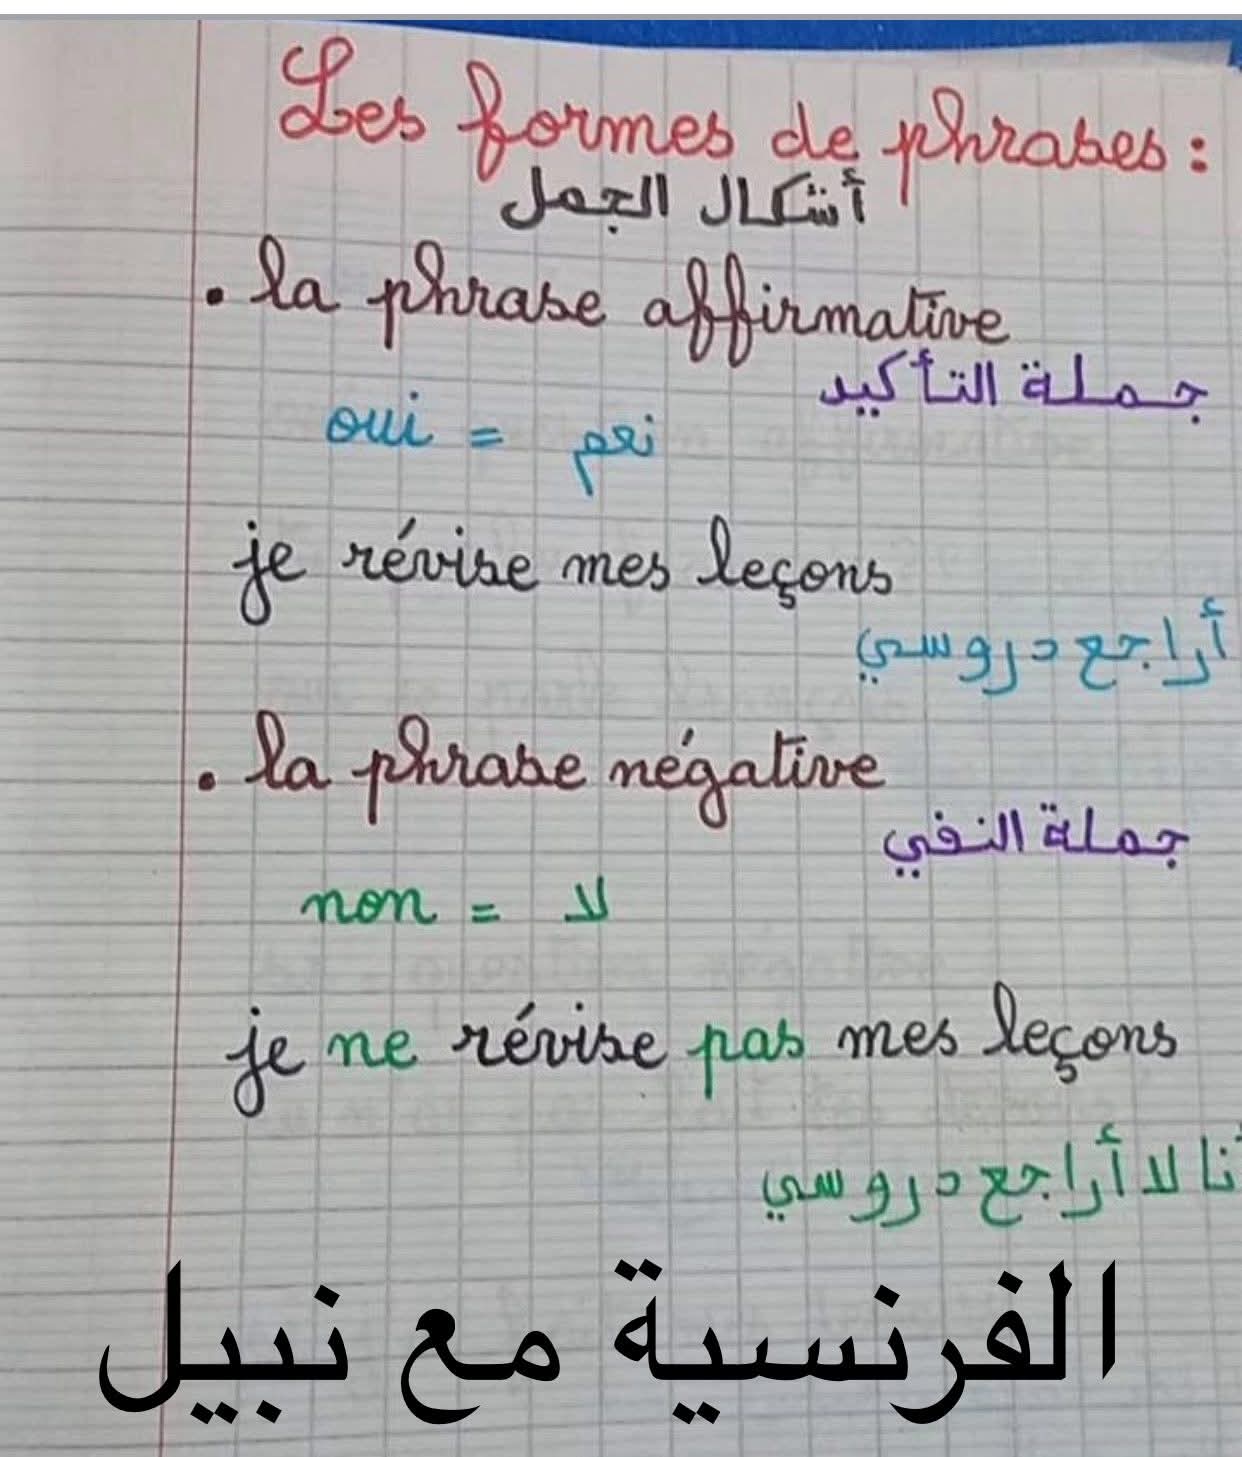 Les formes de phrases :
أشكال الجمل
. la phrase affirmative
جملة التأكيد
oui = نعم
je révise mes leçons
أراجع دروسي
. la phrase négative
جملة النفي
non = لا
je ne révise pas mes leçons
أنا لا أراجع دروسي
الفرنسية مع نبيل